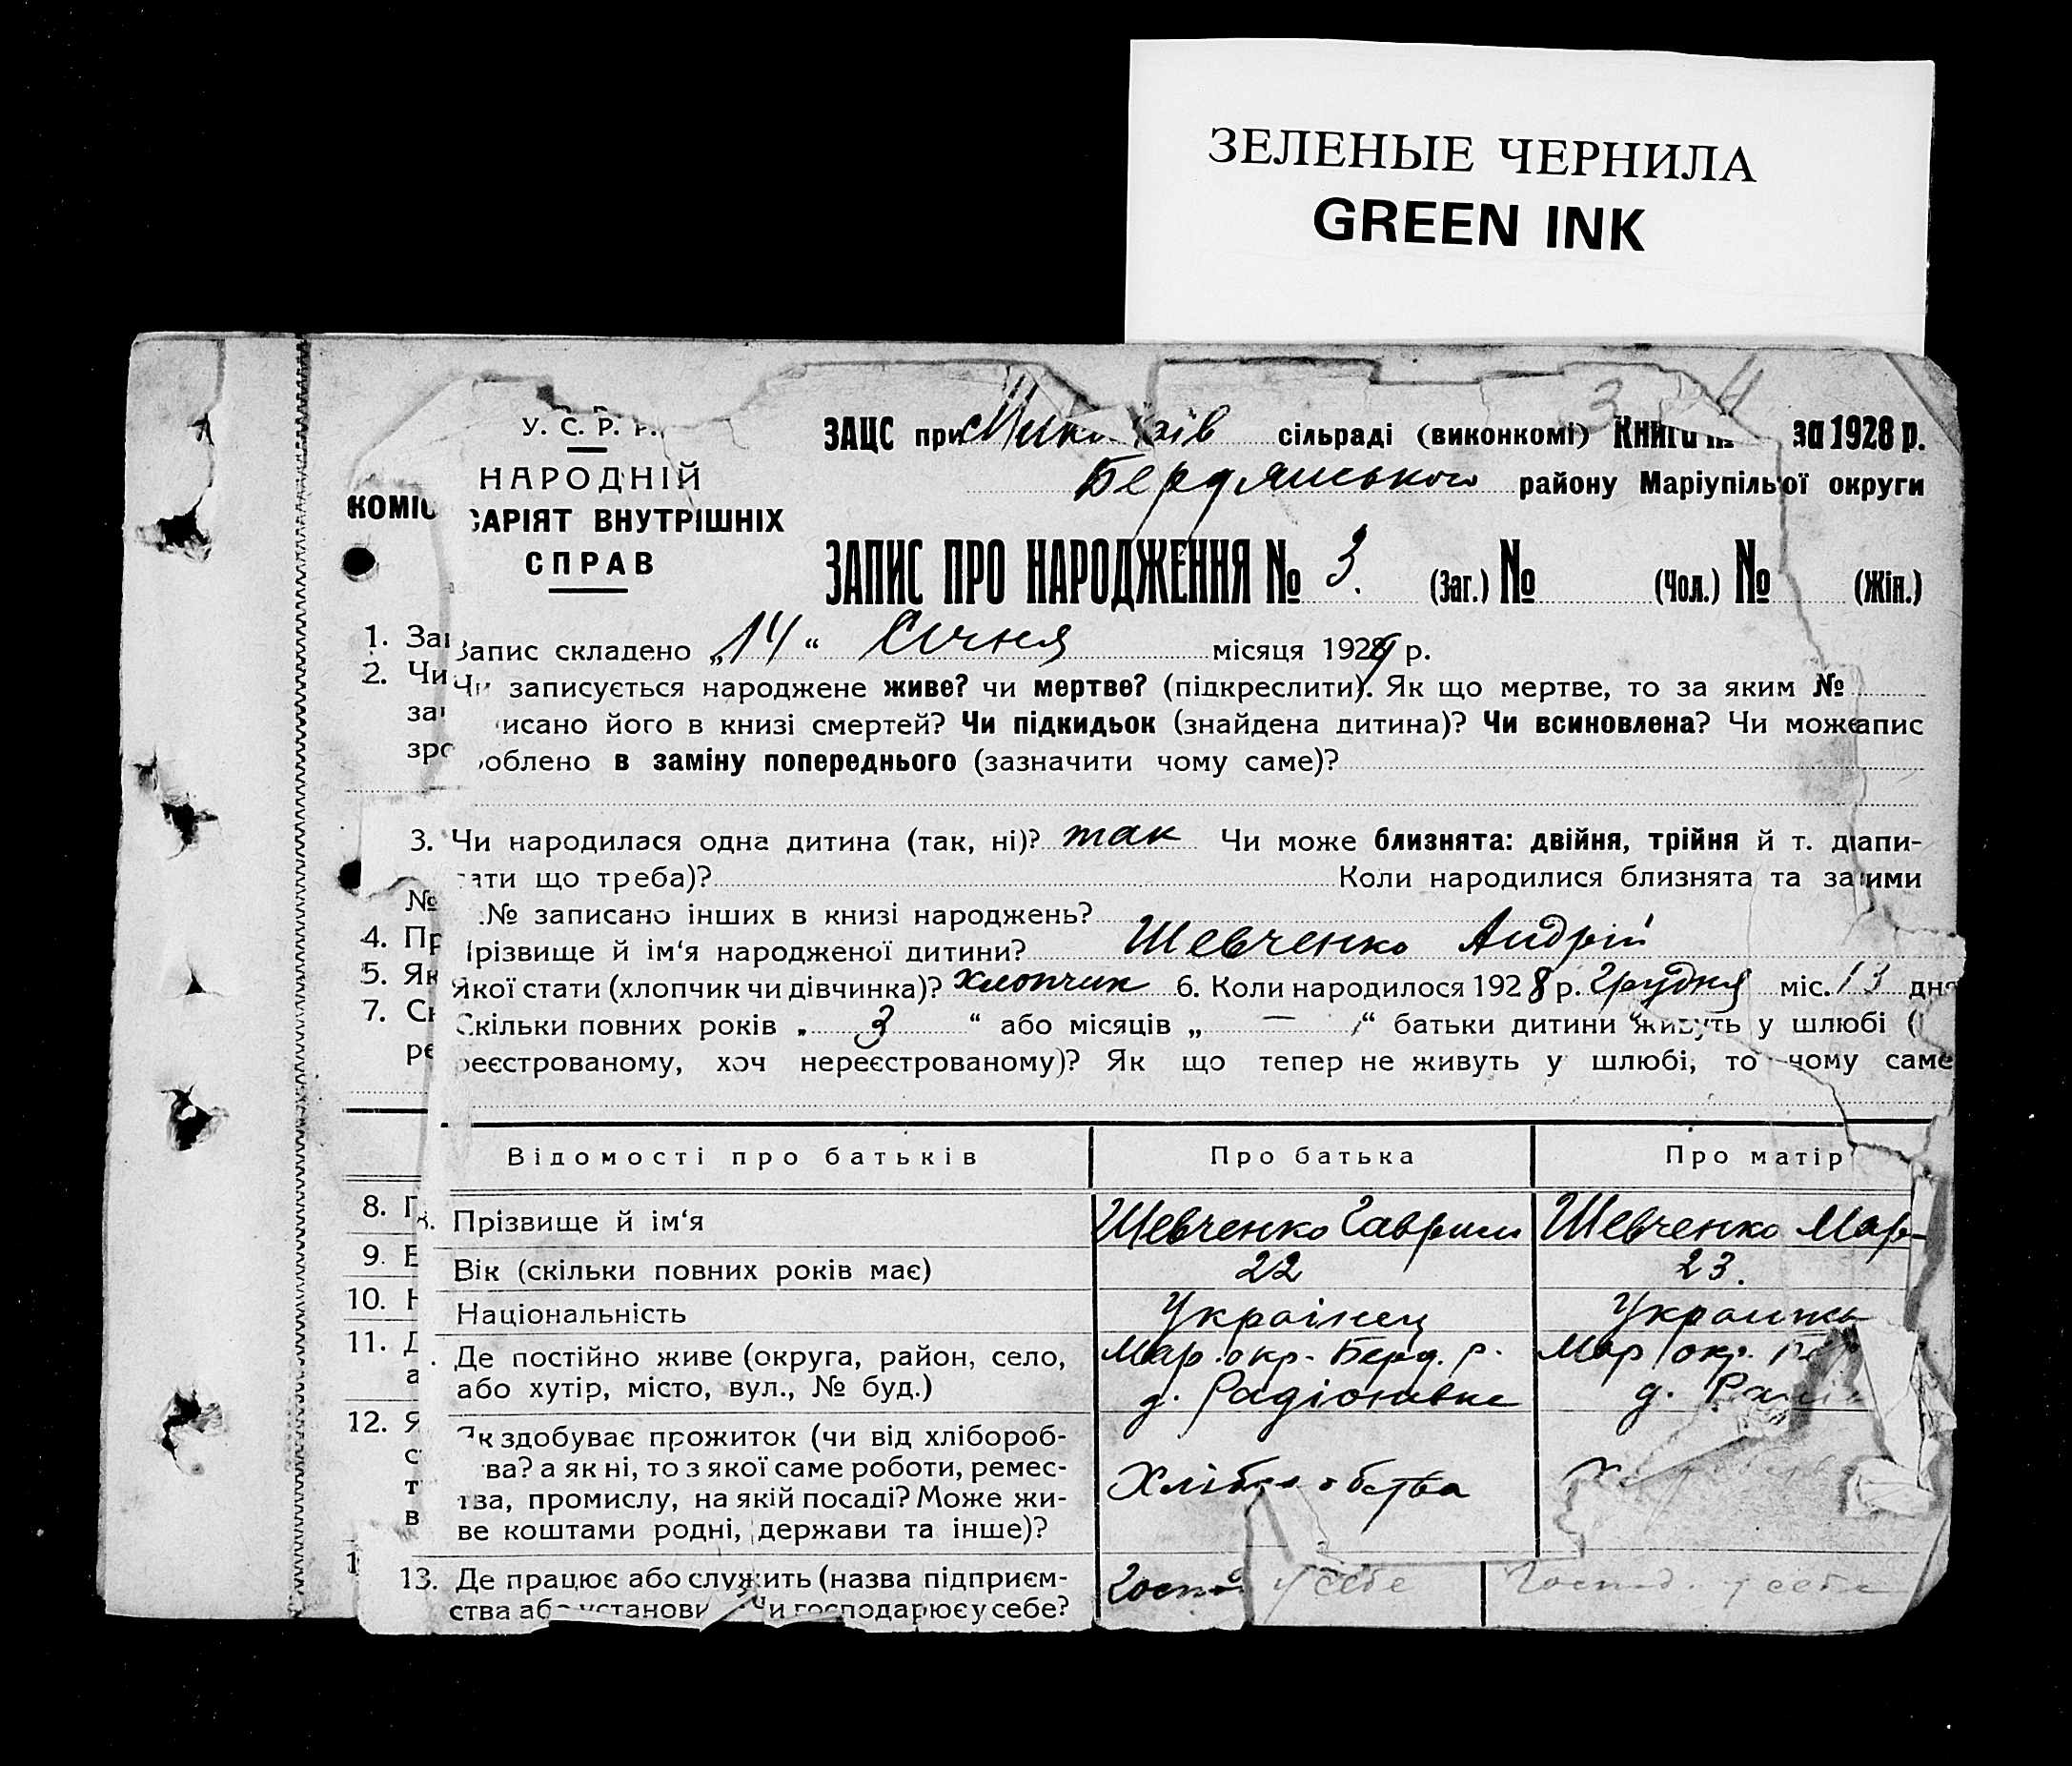 ЗЕЛЕНЫЕ ЧЕРНИЛА
GREEN INK
3 4
У. С. Р. Р.
НАРОДНІЙ
КОМІС САРІЯТ ВНУТРІШНІХ
СПРАВ
ЗАЦС при сільраді (виконкомі) Книга за 1928 р.
Бердянського району Маріупільої округи
ЗАПИС ПРО НАРОДЖЕННЯ № 3. (Заг.) № (Чол.) № (Жін.)
1. Зап Запис складено „14“ Січня місяця 1929 р.
2. Чи Чи записується народжене живе? чи мертве? (підкреслити). Як що мертве, то за яким №
за исано його в книзі смертей? Чи підкидьок (знайдена дитина)? Чи всиновлена? Чи може апис
зро облено в заміну попереднього (зазначити чому саме)?
3. Чи народилася одна дитина (так, ні)? так Чи може близнята: двійня, трійня й т. д апи-
ати що треба)? Коли народилися близнята та за ими
№ № записано інших в книзі народжень?
4. Пр Прізвище й ім‘я народженої дитини? Шевченко Андрій
5. Як Якої стати (хлопчик чи дівчинка)? хлопчик 6. Коли народилося 1928 р. Грудня міс. 13 дня
7. Ск Скільки повних років „ 3 “ або місяців „ — “ батьки дитини живуть у шлюбі (
ре реєстрованому, хоч нереєстрованому)? Як що тепер не живуть у шлюбі, то чому саме
Відомості про батьків Про батька Про матір
8. П 8. Прізвище й ім‘я Шевченко Гаврил Шевченко Мар-
9. В Вік (скільки повних років має) 22 23.
10. Н Національність Українец Украинка
11. Д . Де постійно живе (округа, район, село, Мар. окр. Берд. р. Мар окр.
а або хутір, місто, вул., № буд.) д. Радіонивка д.
12. Я Як здобуває прожиток (чи від хлібороб-
с ва? а як ні, то з якої саме роботи, ремес- Хлібо обства
т тва, промислу, на якій посаді? Може жи-
в ве коштами родні, держави та інше)?
1 13. Де працює або служить (назва підприєм- Госпо у себе Господ. у себе
ства або установи Чи господарює у себе?